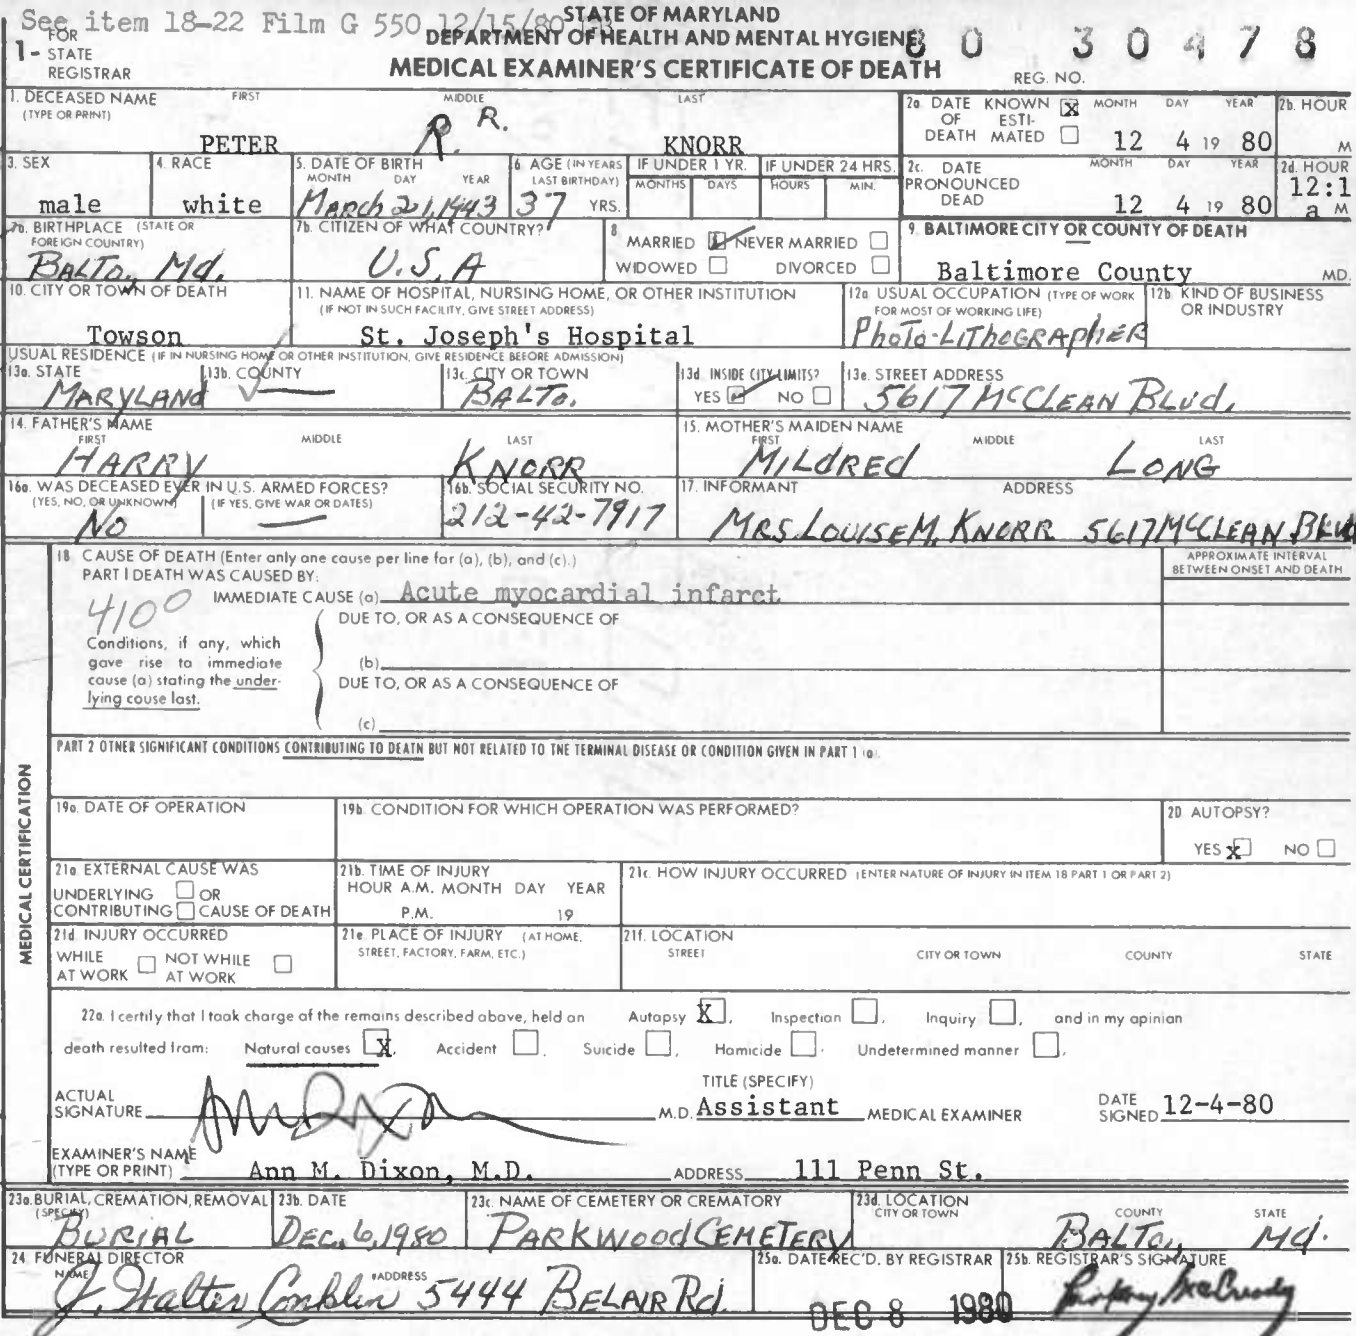 See item 18-22 Film G 550 12/15/80
STATE OF MARYLAND
DEPARTMENT OF HEALTH AND MENTAL HYGIENE
MEDICAL EXAMINER'S CERTIFICATE OF DEATH
1- FOR STATE REGISTRAR
80 30478
REG. NO.
1. DECEASED NAME (TYPE OR PRINT) FIRST MIDDLE LAST
PETER R. R. KNORR
2a. DATE OF DEATH KNOWN X ESTIMATED MONTH DAY YEAR 2b. HOUR
12 4 19 80 M
3. SEX 4. RACE 5. DATE OF BIRTH MONTH DAY YEAR 6. AGE (IN YEARS LAST BIRTHDAY) IF UNDER 1 YR. MONTHS DAYS IF UNDER 24 HRS. HOURS MIN.
male white March 21, 1943 37 YRS.
2c. DATE PRONOUNCED DEAD MONTH DAY YEAR 2d. HOUR
12 4 19 80 12:1 a M
7a. BIRTHPLACE (STATE OR FOREIGN COUNTRY) 7b. CITIZEN OF WHAT COUNTRY?
BALTO, Md. U.S.A
8. MARRIED NEVER MARRIED
WIDOWED DIVORCED
9. BALTIMORE CITY OR COUNTY OF DEATH
Baltimore County MD.
10. CITY OR TOWN OF DEATH 11. NAME OF HOSPITAL, NURSING HOME, OR OTHER INSTITUTION (IF NOT IN SUCH FACILITY, GIVE STREET ADDRESS)
Towson St. Joseph's Hospital
12a. USUAL OCCUPATION (TYPE OF WORK FOR MOST OF WORKING LIFE) 12b. KIND OF BUSINESS OR INDUSTRY
PhoTo-LiThoGRAphER
USUAL RESIDENCE (IF IN NURSING HOME OR OTHER INSTITUTION, GIVE RESIDENCE BEFORE ADMISSION)
13a. STATE 13b. COUNTY 13c. CITY OR TOWN 13d. INSIDE CITY LIMITS? YES NO 13e. STREET ADDRESS
MARYLAND BALTO. 5617 McCLEAN BLvd.
14. FATHER'S NAME FIRST MIDDLE LAST 15. MOTHER'S MAIDEN NAME FIRST MIDDLE LAST
HARRY KNORR MILDRED LONG
16a. WAS DECEASED EVER IN U.S. ARMED FORCES? (YES, NO, OR UNKNOWN) (IF YES, GIVE WAR OR DATES) 16b. SOCIAL SECURITY NO. 17. INFORMANT ADDRESS
No 212-42-7917 MRS. LOUISE M. KNORR 5617 McCLEAN BLVD
MEDICAL CERTIFICATION
18. CAUSE OF DEATH (Enter only one cause per line for (a), (b), and (c).)
APPROXIMATE INTERVAL BETWEEN ONSET AND DEATH
PART I DEATH WAS CAUSED BY:
IMMEDIATE CAUSE (a) Acute myocardial infarct
4100
DUE TO, OR AS A CONSEQUENCE OF
Conditions, if any, which gave rise to immediate cause (a) stating the underlying cause last.
(b)
DUE TO, OR AS A CONSEQUENCE OF
(c)
PART 2 OTHER SIGNIFICANT CONDITIONS CONTRIBUTING TO DEATH BUT NOT RELATED TO THE TERMINAL DISEASE OR CONDITION GIVEN IN PART 1 (a).
19a. DATE OF OPERATION 19b. CONDITION FOR WHICH OPERATION WAS PERFORMED? 20 AUTOPSY?
YES X NO
21a EXTERNAL CAUSE WAS
UNDERLYING OR
CONTRIBUTING CAUSE OF DEATH
21b. TIME OF INJURY
HOUR A.M. MONTH DAY YEAR
P.M. 19
21c. HOW INJURY OCCURRED (ENTER NATURE OF INJURY IN ITEM 18 PART 1 OR PART 2)
21d INJURY OCCURRED
WHILE AT WORK NOT WHILE AT WORK
21e. PLACE OF INJURY (AT HOME, STREET, FACTORY, FARM, ETC.)
21f. LOCATION
STREET CITY OR TOWN COUNTY STATE
22a. I certify that I took charge of the remains described above, held an Autopsy X, Inspection, Inquiry, and in my opinion
death resulted from: Natural causes X, Accident, Suicide, Homicide, Undetermined manner.
ACTUAL SIGNATURE Ann M Dixon M.D.
TITLE (SPECIFY)
Assistant MEDICAL EXAMINER
DATE SIGNED 12-4-80
EXAMINER'S NAME (TYPE OR PRINT) Ann M. Dixon, M.D. ADDRESS 111 Penn St.
23a. BURIAL, CREMATION, REMOVAL (SPECIFY) 23b. DATE 23c. NAME OF CEMETERY OR CREMATORY 23d. LOCATION CITY OR TOWN COUNTY STATE
BURIAL DEC. 6, 1980 PARKWOOD CEMETERY BALTO., Md.
24. FUNERAL DIRECTOR NAME ADDRESS 25a. DATE REC'D. BY REGISTRAR 25b. REGISTRAR'S SIGNATURE
J. Walter Conklin 5444 BELAIR Rd. DEC 8 1980